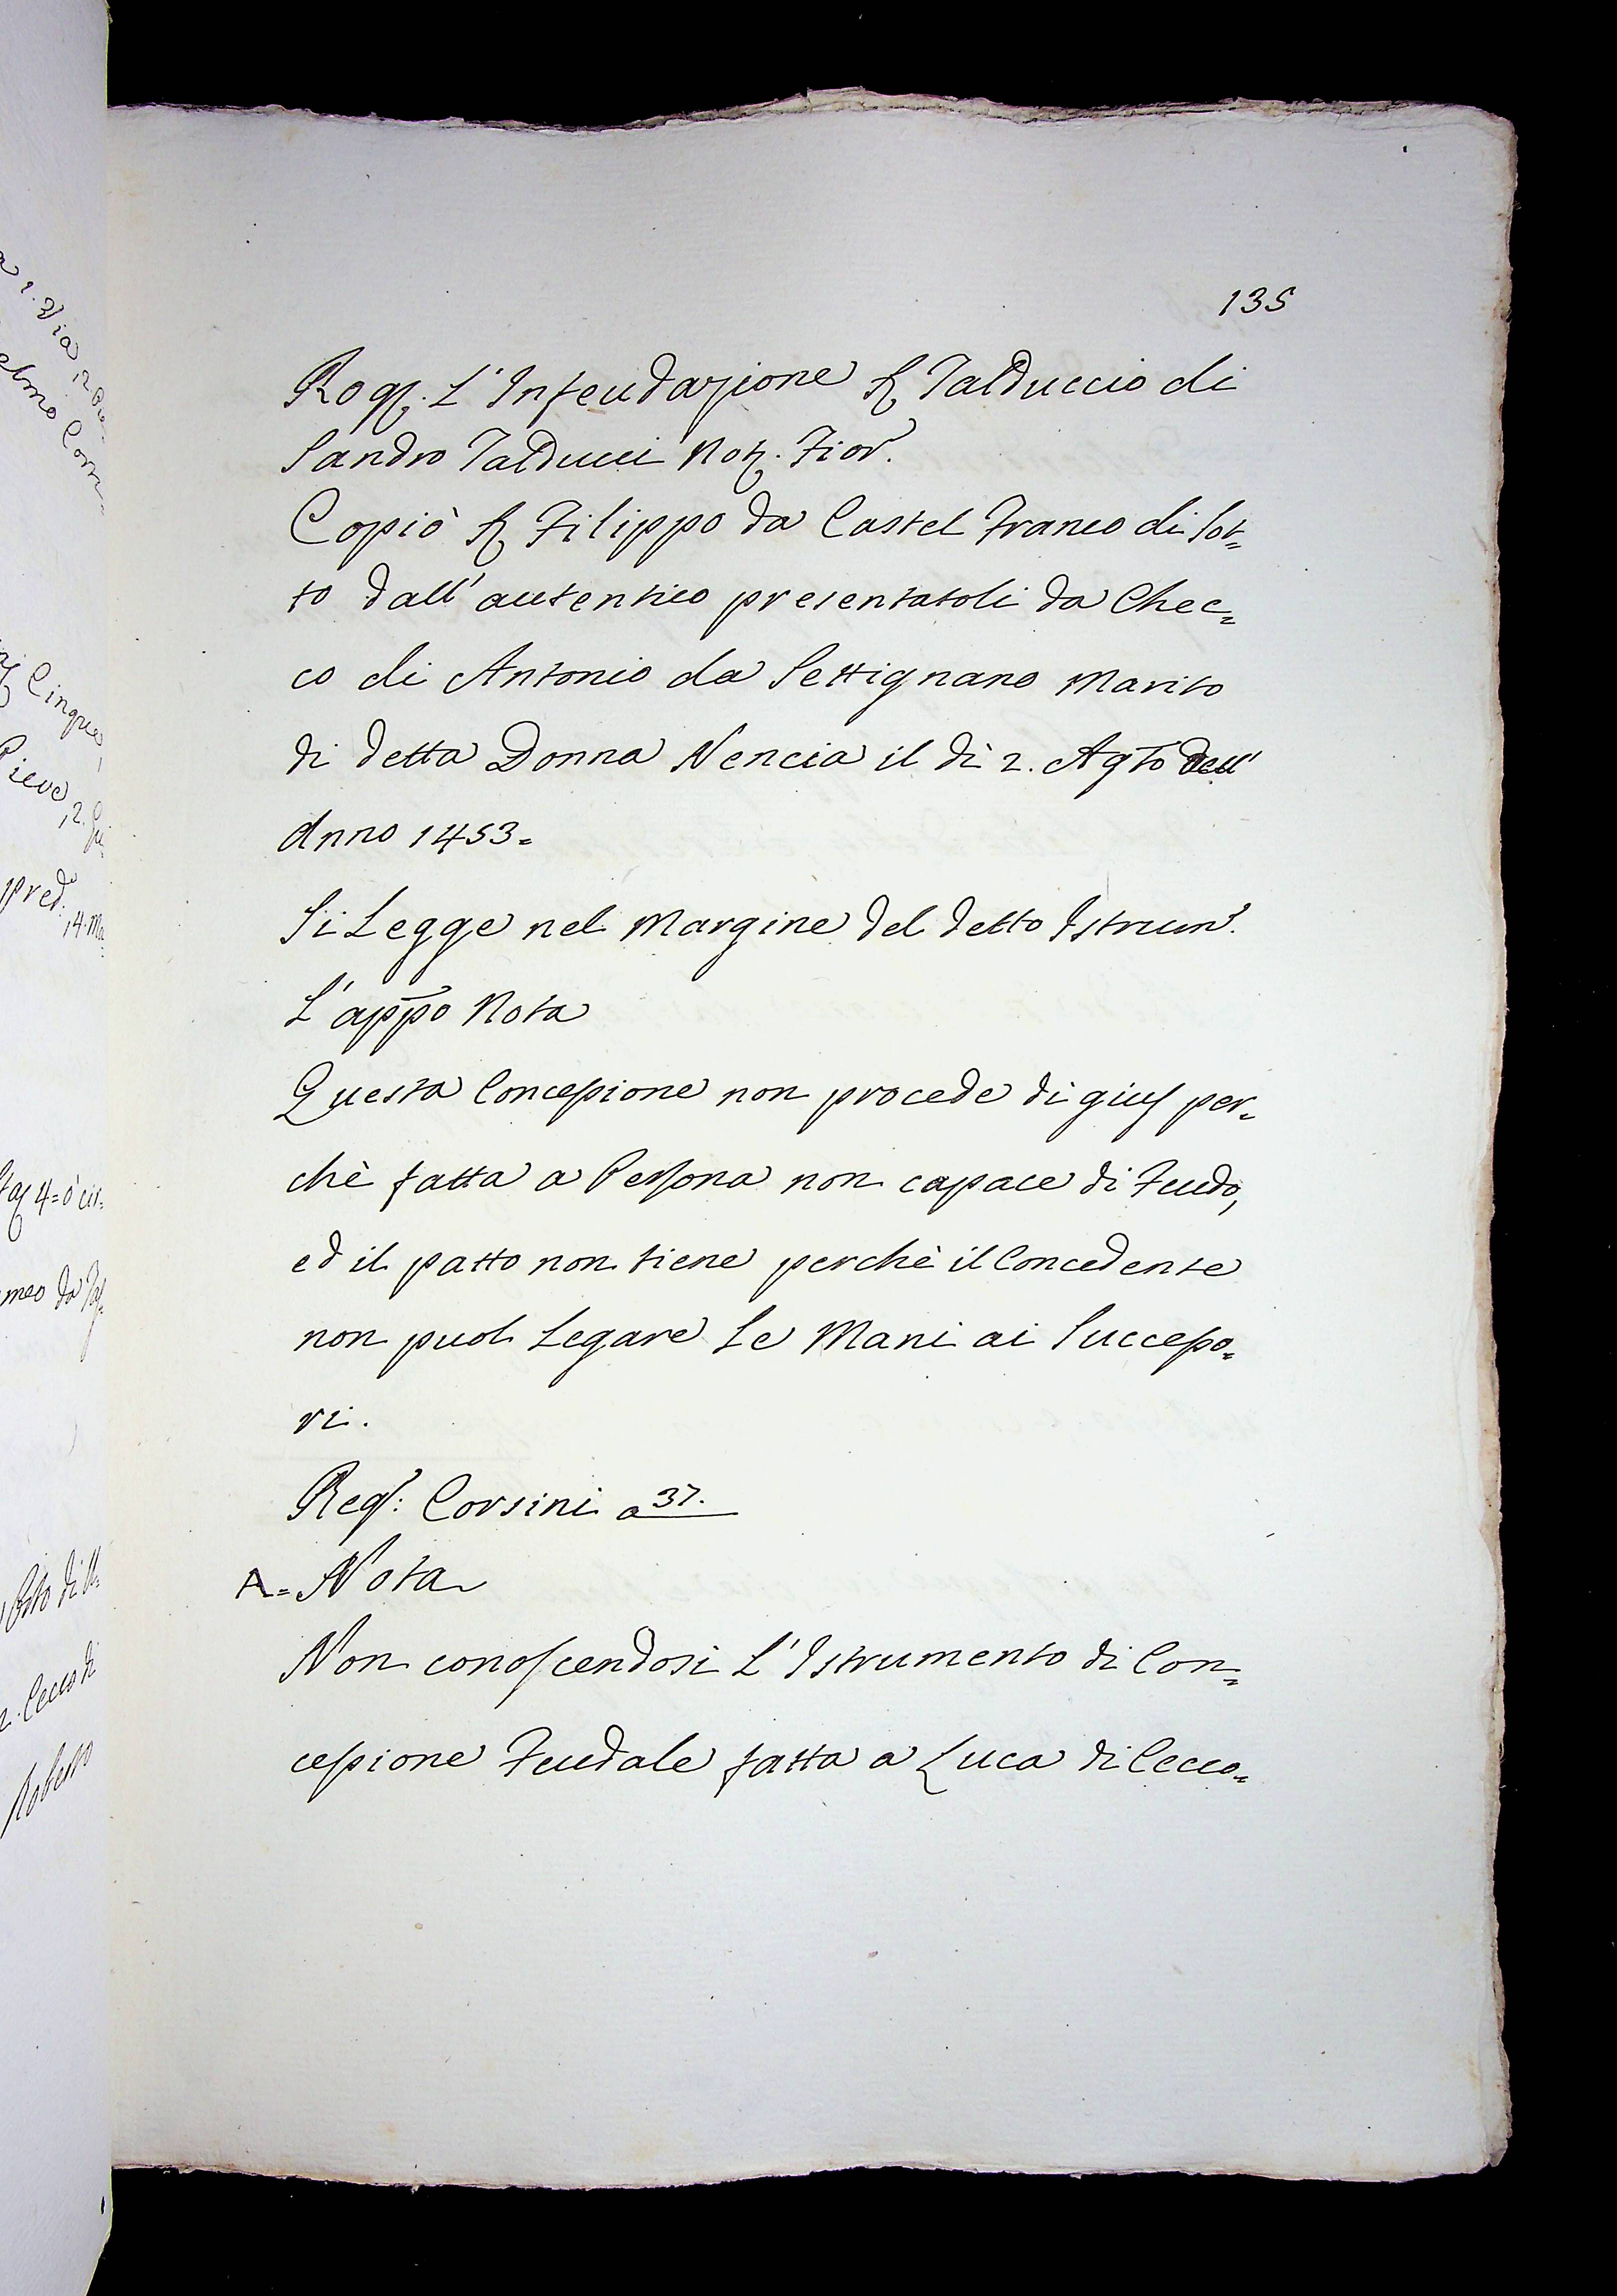 135
Rogſ. L'Infeudazione Sſ Talduccio di
Sandro Talducci Notſ. Fior.
Copiò Sſ Filippo da Castel Franco di Sot=
to dall'autentico presentatoli da Chec=
co di Antonio da Settignano Marito
di detta Donna Nencia il dì 2. Agto dell'
Anno 1453=
Si Legge nel Margine del detto Istrum.
L'appo Nota
Questa Conceſsione non procede di giuſ per=
chè fatta a Perſona non capace di Feudo,
ed il patto non tiene perchè il Concedente
non puol Legare Le Mani ai Succeſso=
ri.
Regſ: Corsini a 37.
A= Nota
Non conoſcendosi L'Istrumento di Con=
ceſsione Feudale fatta a Luca di Cecco=
Cingue
Pieve, 2.
pred.
14. Ma
meo da
2. Cecco di